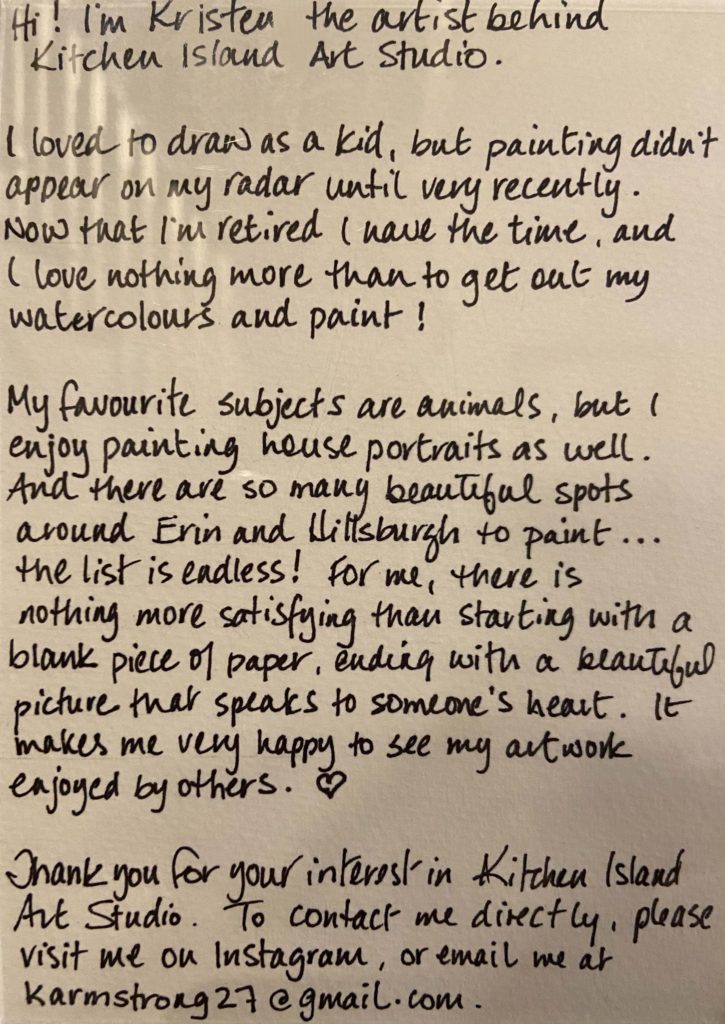 Hi! I'm Kristen the artist behind
Kitchen Island Art Studio.
I loved to draw as a kid, but painting didn't
appear on my radar until very recently.
Now that I'm retired I have the time, and
I love nothing more than to get out my
watercolours and paint!
My favourite subjects are animals, but I
enjoy painting house portraits as well.
And there are so many beautiful spots
around Erin and Hillsburgh to paint...
the list is endless! For me, there is
nothing more satisfying than starting with a
blank piece of paper, ending with a beautiful
picture that speaks to someone's heart. It
makes me very happy to see my artwork
enjoyed by others. ♡
Thank you for your interest in Kitchen Island
Art Studio. To contact me directly, please
visit me on Instagram, or email me at
karmstrong27@gmail.com.